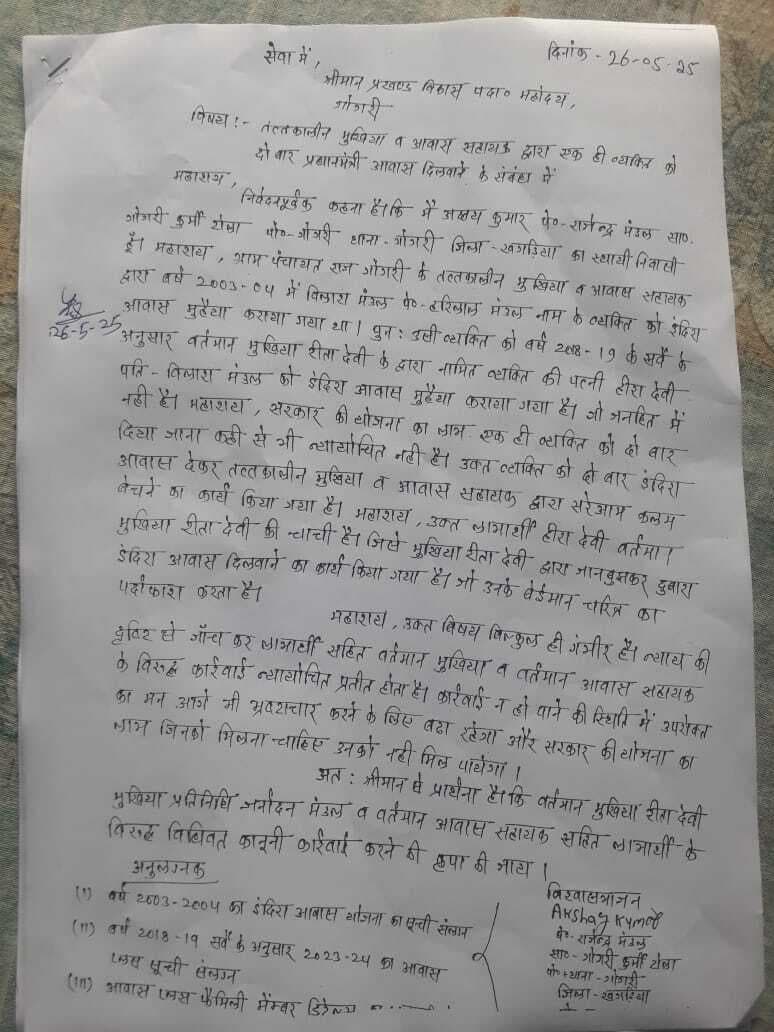 दिनांक - 26-05-25
सेवा में,
श्रीमान प्रखण्ड विकास पदा० महोदय,
गोगरी
विषय :- तत्तकालीन मुखिया व आवास सहायक द्वारा एक ही व्यक्ति को
दो बार प्रधानमंत्री आवास दिलवाने के संबंध में
महाशय,
निवेदनपूर्वक कहना है। कि मैं अक्षय कुमार पे०- राजेन्द्र मंडल सा०-
गोगरी कुर्मी टोला पो०- गोगरी थाना- गोगरी जिला - खगड़िया का स्थायी निवासी
हूँ। महाशय, ग्राम पंचायत राज गोगरी के तत्तकालीन मुखिया व आवास सहायक
द्वारा वर्ष 2003-04 में विलाश मंडल पे०- हरिलाल मंडल नाम के व्यक्ति को इंदिरा
आवास मुहैया कराया गया था। पुन: उसी व्यक्ति को वर्ष 2018-19 के सर्वे के
26-5-25
अनुसार वर्तमान मुखिया रीता देवी के द्वारा नामित व्यक्ति की पत्नी हीरा देवी
पति - विलाश मंडल को इंदिरा आवास मुहैया कराया गया है। जो जनहित में
नही है। महाशय, सरकार की योजना का लाभ एक ही व्यक्ति को दो बार
दिया जाना कही से भी न्यायोचित नही है। उक्त व्यक्ति को दो बार इंदिरा
आवास देकर तत्तकालीन मुखिया व आवास सहायक द्वारा सरेआम कलम
बेचने का कार्य किया गया है। महाशय, उक्त लाभार्थी हीरा देवी वर्तमा।
मुखिया रीता देवी की चाची है। जिसे मुखिया रीता देवी द्वारा जानबुझकर दुबारा
इंदिरा आवास दिलवाने का कार्य किया गया है। जो उनके बेईमान चरित्र का
पर्दाफाश करता है।
महाशय, उक्त विषय बिल्कुल ही गंभीर है। न्याय की
दृष्टि से जाँच कर लाभार्थी सहित वर्तमान मुखिया व वर्तमान आवास सहायक
के विरुद्ध कार्रवाई न्यायोचित प्रतीत होता है। कार्रवाई न हो पाने की स्थिति में उपरोक्त
का मन आगे भी भ्रष्टाचार करने के लिए बढ़ा रहेगा और सरकार की योजना का
लाभ जिनको मिलना चाहिए उनको नही मिल पायेगा।
अत: श्रीमान से प्रार्थना है। कि वर्तमान मुखिया रीता देवी
मुखिया प्रतिनिधि जर्नादन मंडल व वर्तमान आवास सहायक सहित लाभार्थी के
विरुद्ध विधिवत कानूनी कार्रवाई करने की कृपा की जाय।
अनुलग्नक
(I) वर्ष 2003-2004 का इंदिरा आवास योजना का सूची संलग्न
(II) वर्ष 2018-19 सर्वे के अनुसार 2023-24 का आवास
प्लस सूची संलग्न
(III) आवास प्लस फैमिली मेंम्बर
विश्वासभाजन
Akshay Kumar
पे०- राजेन्द्र मंडल
सा०- गोगरी कुर्मी टोला
पो० + थाना - गोगरी
जिला - खगड़िया